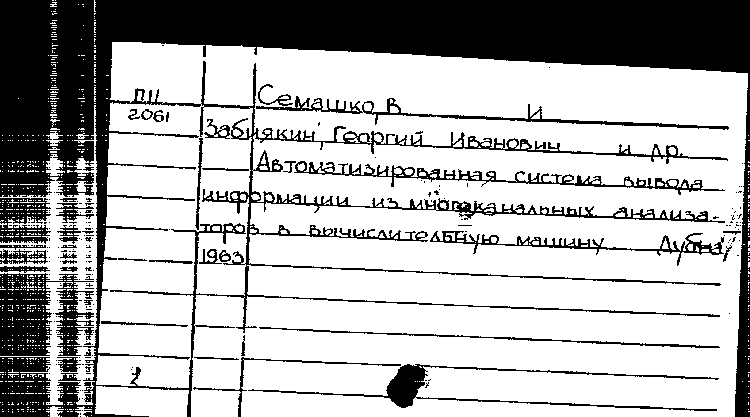 П11
2061
Семашко, В И
Забиякин, Георгий Иванович и др.
Автоматизированная система вывода
информации из многоканальных анализа-
торов в вычислительную машину. Дубна,
1963